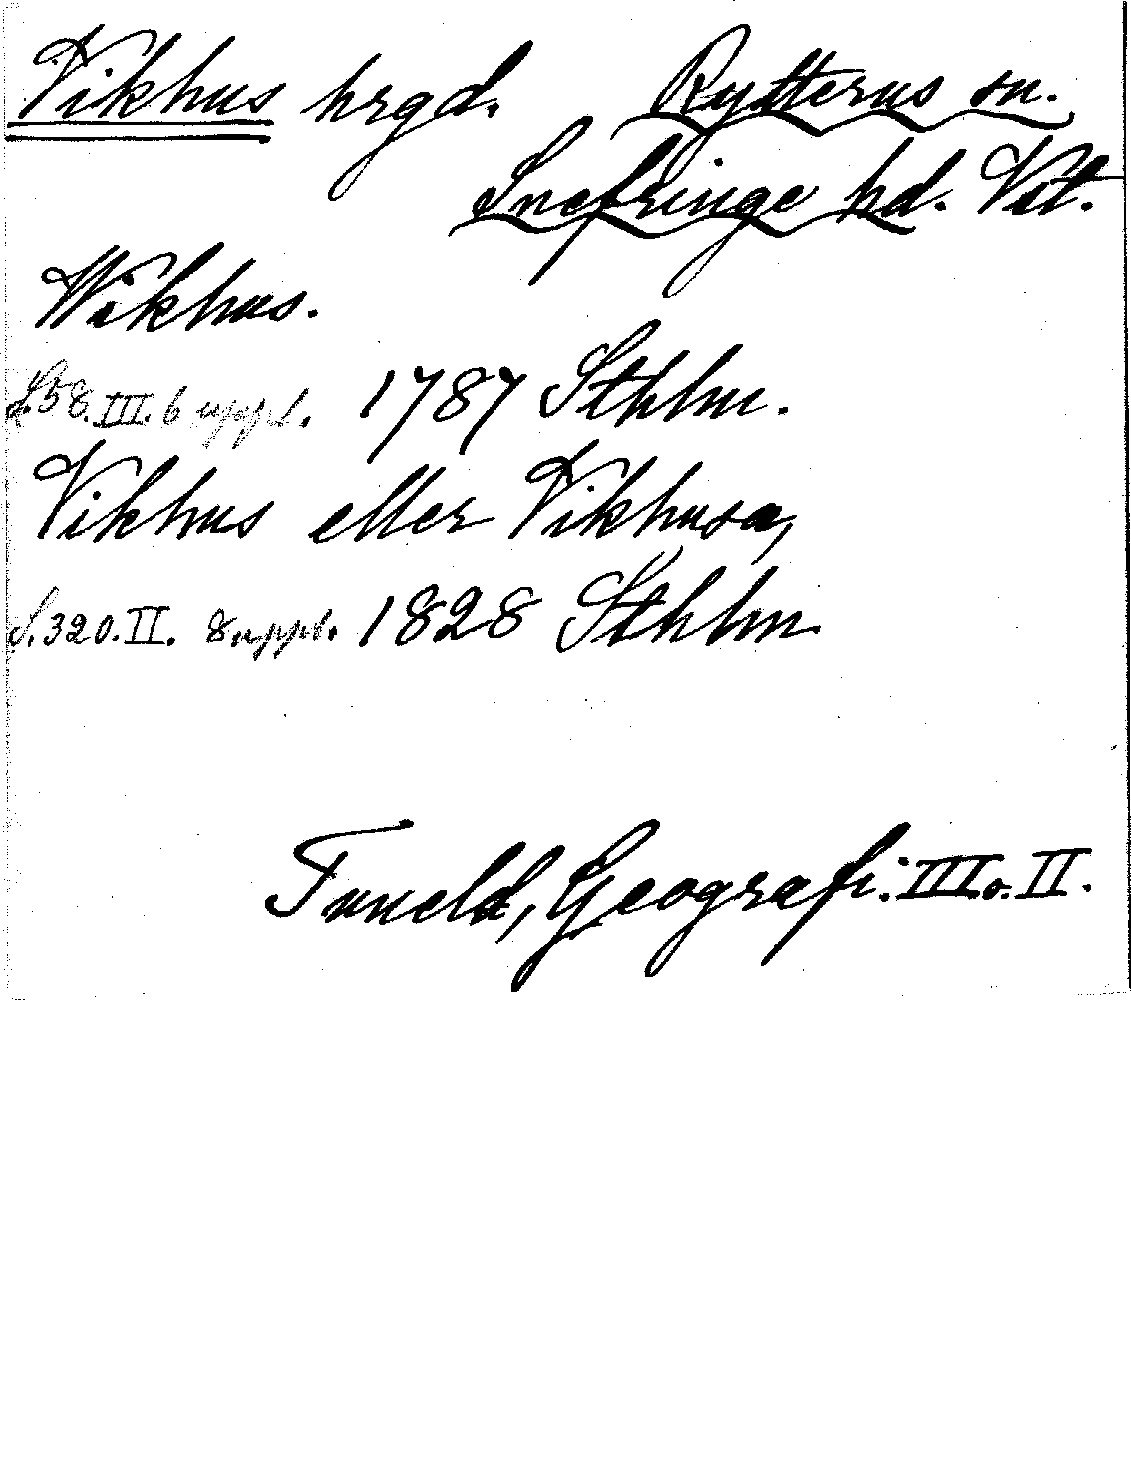 Vikhus hrgd. Rytterns sn.
Snefringe hd. Vst.
Wikhus.
S.58. III. 6 uppl. 1787 Sthlm.
Vikhus eller Vikhusa,
S.320. II. 8 uppl. 1828 Sthlm
Tuneld, Geografi. III o. II.